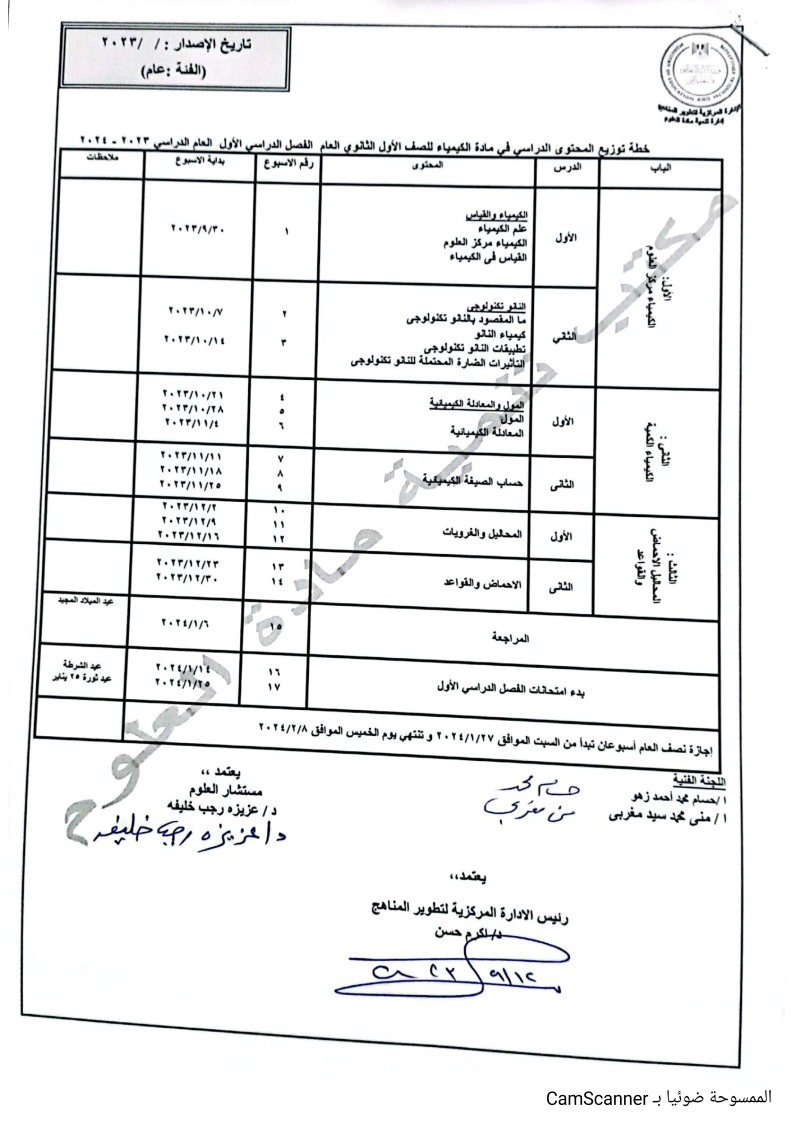 تاريخ الإصدار : / /٢٠٢٣
(الفئة :عام)
الإدارة المركزية لتطوير المناهج
إدارة تنمية مادة العلوم
خطة توزيع المحتوى الدراسي في مادة الكيمياء للصف الأول الثانوي العام الفصل الدراسي الأول العام الدراسي ٢٠٢٣ - ٢٠٢٤
الباب الدرس المحتوى رقم الاسبوع بداية الاسبوع ملاحظات
الأول:
الكيمياء مركز العلوم
الأول
الكيمياء والقياس
علم الكيمياء
الكيمياء مركز العلوم
القياس فى الكيمياء
١ ٢٠٢٣/٩/٣٠
الثاني
النانو تكنولوجى
ما المقصود بالنانو تكنولوجى
كيمياء النانو
تطبيقات النانو تكنولوجى
التأثيرات الضارة المحتملة للنانو تكنولوجى
٢ ٢٠٢٣/١٠/٧
٣ ٢٠٢٣/١٠/١٤
الثانى :
الكيمياء الكمية
الأول
المول والمعادلة الكيميائية
المول
المعادلة الكيميائية
٤ ٢٠٢٣/١٠/٢١
٥ ٢٠٢٣/١٠/٢٨
٦ ٢٠٢٣/١١/٤
الثانى
حساب الصيغة الكيميائية
٧ ٢٠٢٣/١١/١١
٨ ٢٠٢٣/١١/١٨
٩ ٢٠٢٣/١١/٢٥
الثالث :
المحاليل الاحماض
والقواعد
الأول
المحاليل والغرويات
١٠ ٢٠٢٣/١٢/٢
١١ ٢٠٢٣/١٢/٩
١٢ ٢٠٢٣/١٢/١٦
الثانى
الاحماض والقواعد
١٣ ٢٠٢٣/١٢/٢٣
١٤ ٢٠٢٣/١٢/٣٠
المراجعة ١٥ ٢٠٢٤/١/٦ عيد الميلاد المجيد
بدء امتحانات الفصل الدراسي الأول
١٦ ٢٠٢٤/١/١٤ عيد الشرطة
١٧ ٢٠٢٤/١/٢٥ عيد ثورة ٢٥ يناير
إجازة نصف العام أسبوعان تبدأ من السبت الموافق ٢٠٢٤/١/٢٧ و تنتهي يوم الخميس الموافق ٢٠٢٤/٢/٨
مكتب تنمية مادة العلوم
اللجنة الفنية
ا/حسام محمد أحمد زهو
ا / منى محمد سيد مغربى
حسام محمد
منى مغربي
يعتمد ،،
مستشار العلوم
د/ عزيزه رجب خليفه
د/ عزيزه رجب خليفه
يعتمد،،
رئيس الادارة المركزية لتطوير المناهج
د/ اكرم حسن
الممسوحة ضوئيا بـ CamScanner